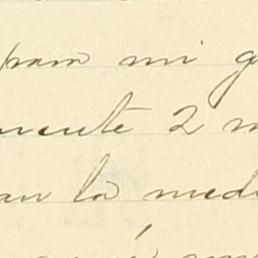 para mi g
mente 2 m
an la med